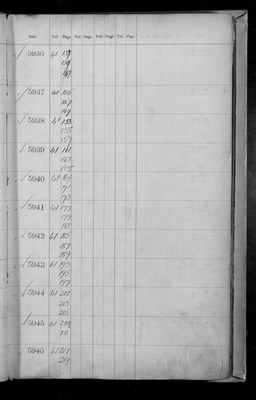 Vol. Page. Vol. Page. Vol. Page. Vol. Page.
5936 61 139
5937 61
5938 61 153
155
157
5939 61 161
163
5940
171
173
5941 61 177
179
5942 61 185
187
189
5943 61 193
195
197
5944 61 201
203
205
5945 61 209
211
5946 61 217
219